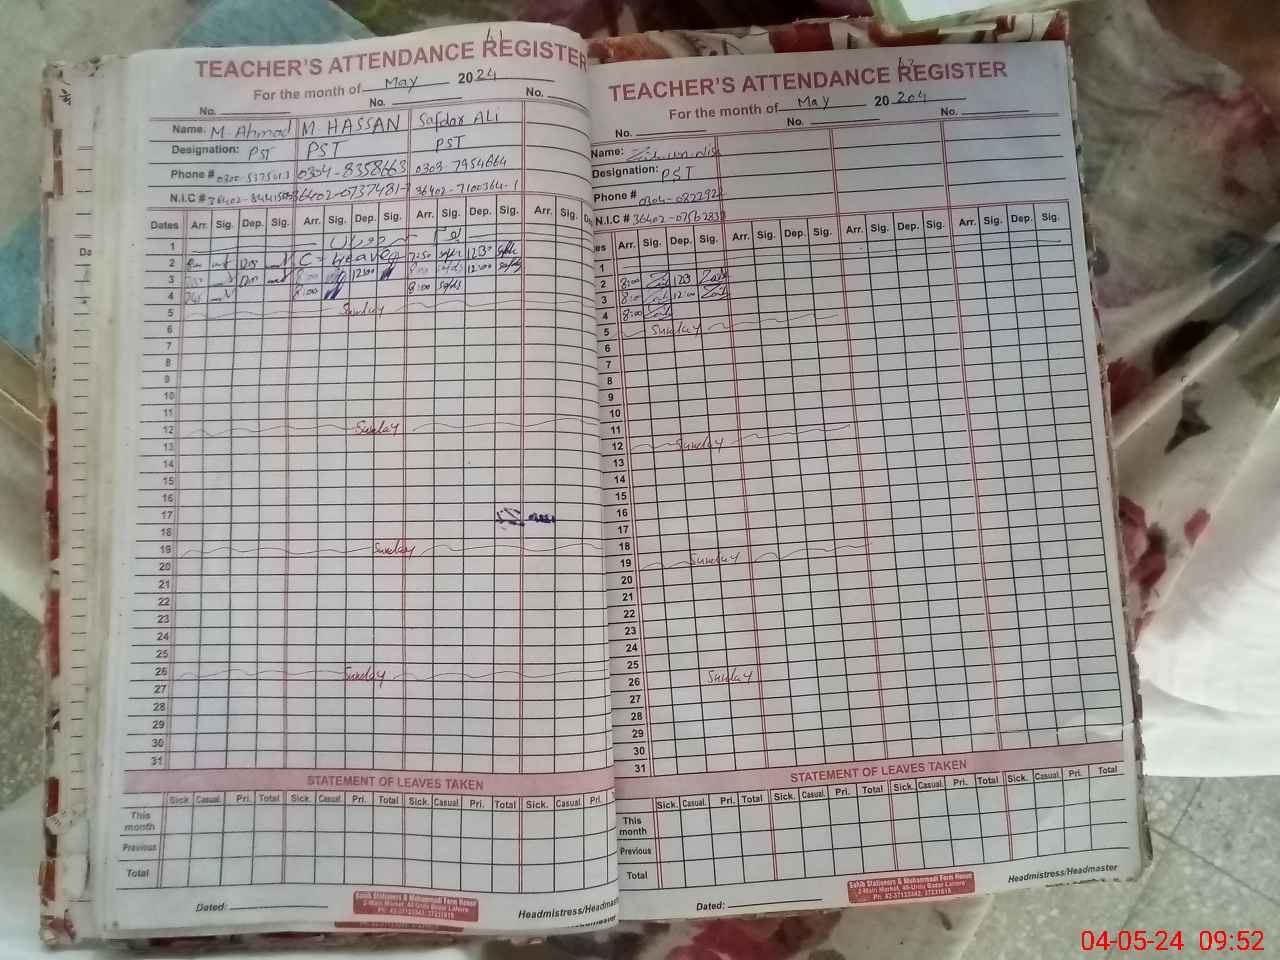 61
TEACHER'S ATTENDANCE REGISTER
For the month of May 2024
No. No. No.
Name: M. Ahmad M. HASSAN Safdar ALi
Designation: PST PST PST
Phone # 0304-8358663 0303-7954664
N.I.C # 36402-7100364-1
Dates Arr. Sig. Dep. Sig. Arr. Sig. Dep. Sig. Arr. Sig. Dep. Sig. Arr. Sig.
1
2 C-Leave 7:50 1230
3 8:00 12:00 8:00 12:00
4 8:00 8:00
5 Sunday
6
7
8
9
10
11
12 Sunday
13
14
15
16
17
18
19 Sunday
20
21
22
23
24
25
26 Sunday
27
28
29
30
31
STATEMENT OF LEAVES TAKEN
Sick. Casual. Pri. Total Sick. Casual. Pri. Total Sick. Casual. Pri. Total Sick. Casual. Pri.
This month
Previous
Total
Dated:
Sahib Stationers & Mohammadi Form House
2-Main Market, 40-Urdu Bazar Lahore
Headmistress/Headmas
TEACHER'S ATTENDANCE REGISTER
For the month of May 20204
No. No. No.
Name:
Designation: PST
Phone #
N.I.C #
Arr. Sig. Dep. Sig. Arr. Sig. Dep. Sig. Arr. Sig. Dep. Sig. Arr. Sig. Dep. Sig.
1
2 8:00 1230
3 8:00 12:00
4 8:00
5 Sunday
6
7
8
9
10
11
12 Sunday
13
14
15
16
17
18
19 Sunday
20
21
22
23
24
25
26 Sunday
27
28
29
30
31
STATEMENT OF LEAVES TAKEN
Sick. Casual. Pri. Total Sick. Casual. Pri. Total Sick. Casual. Pri. Total Sick. Casual. Pri. Total
This month
Previous
Total
Dated:
Sahib Stationers & Mohammadi Form House
2-Main Market, 40-Urdu Bazar Lahore
Headmistress/Headmaster
04-05-24 09:52